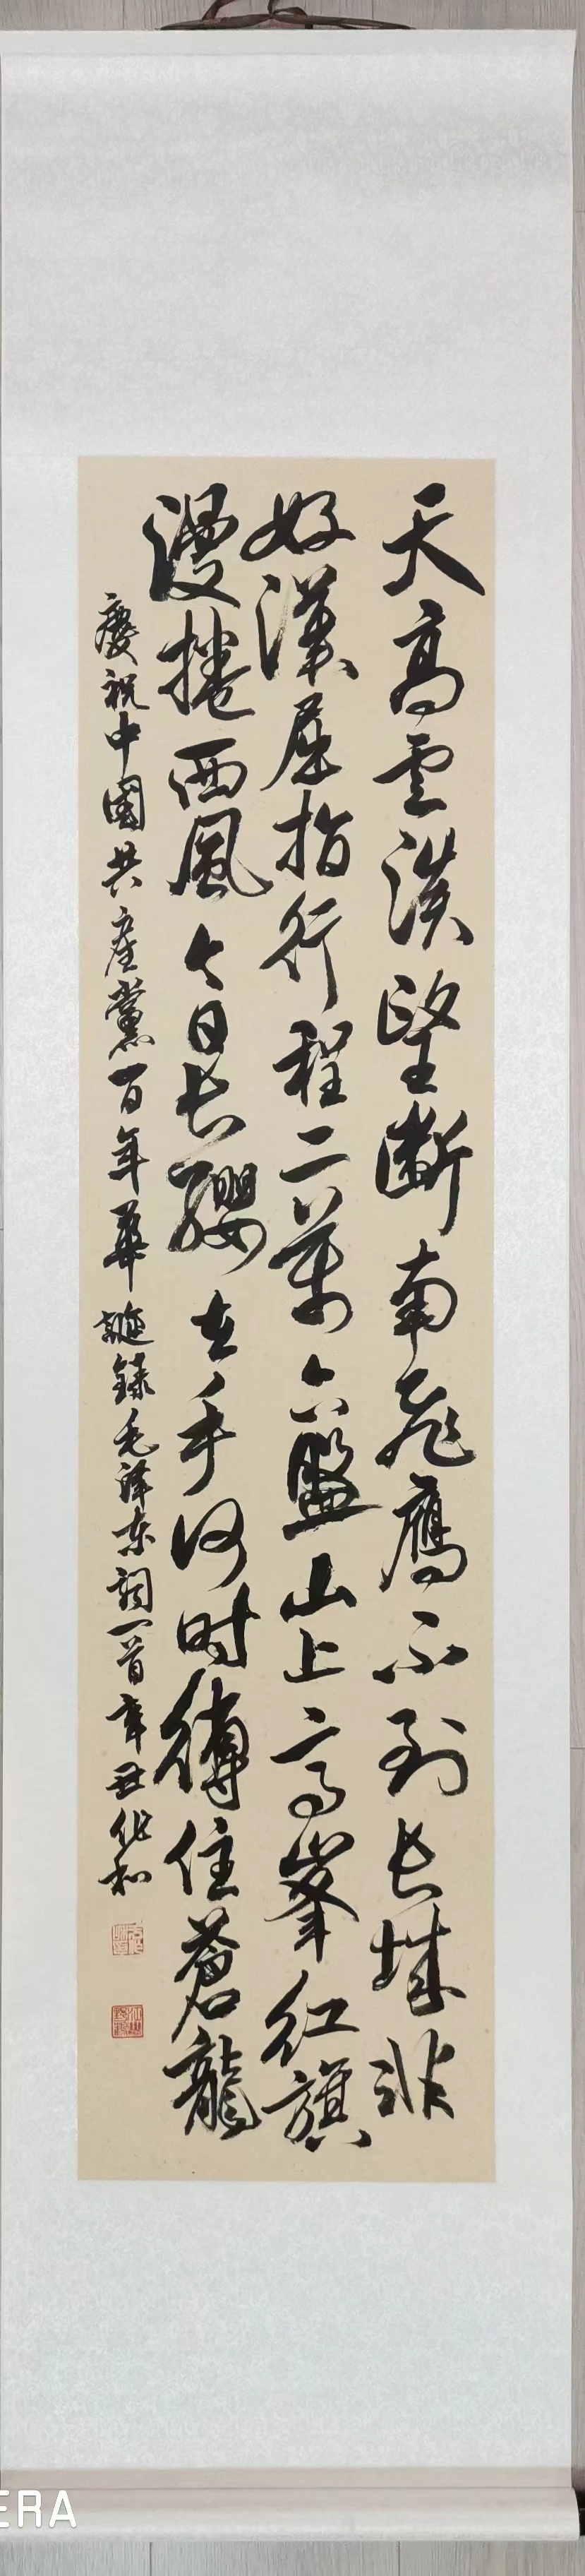 天高雲淡望斷南飛鷹不到長城非
好漢屈指行程二萬六盤山上高峯紅旗
漫捲西風今日長纓在手何時縛住蒼龍
慶祝中國共產黨百年華誕錄毛澤東詞一首辛丑作和
ERA